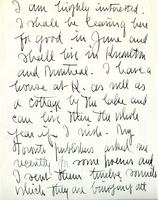 I am highly interested.
I shall be leaving here
for good in June and
shall live in Kingston
and Montreal. I have a
house at K. as well as
a cottage by the lake and
can live there the whole
year if I wish. My
Toronto publishers asked me
recently for some poems and
I sent them twelve sonnets
which they are bringing out